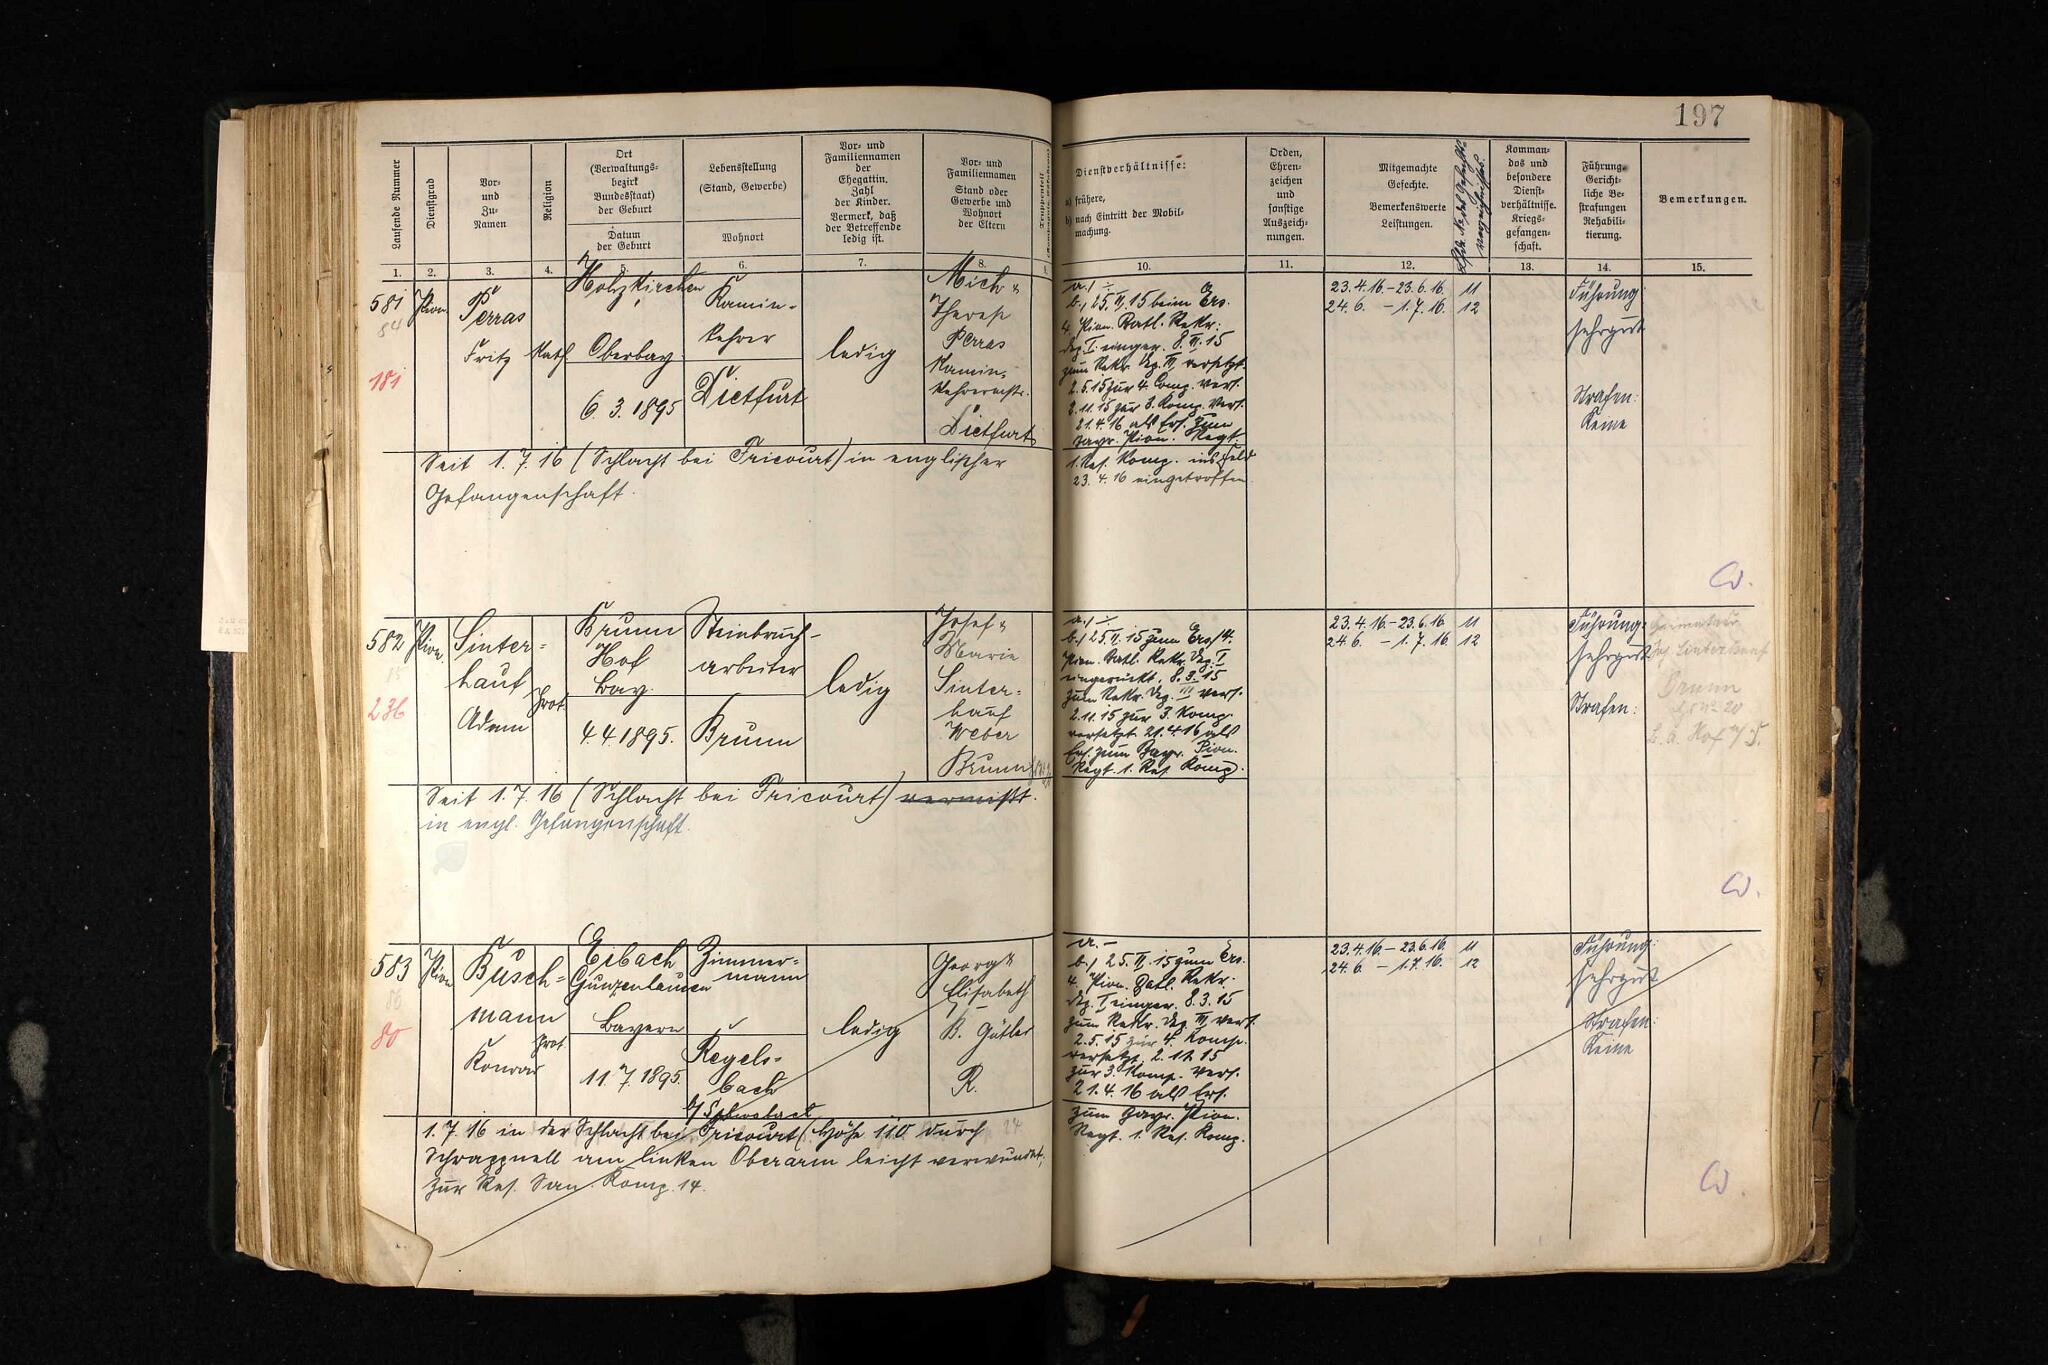 197
Laufende Nummer
Dienstgrad
Vor-
und
Zu-
Namen
Religion
Ort
(Verwaltungs-
bezirk
Bundesstaat)
der Geburt
Datum
der Geburt
Lebensstellung
(Stand, Gewerbe)
Wohnort
Vor- und
Familiennamen
der
Ehegattin.
Zahl
der Kinder.
Vermerk, daß
der Betreffende
ledig ist.
Vor- und
Familiennamen
Stand oder
Gewerbe und
Wohnort
der Eltern
Dienstverhältnisse:
a) frühere,
b) nach Eintritt der Mobil-
machung.
Orden,
Ehren-
zeichen
und
sonstige
Auszeich-
nungen.
Mitgemachte
Gefechte.
Bemerkenswerte
Leistungen.
Komman-
dos und
besondere
Dienst-
verhältnisse.
Kriegs-
gefangen-
schaft.
Führung.
Gericht-
liche Be-
strafungen
Rehabili-
tierung.
Bemerkungen.
1. 2. 3. 4. 5. 6. 7. 8.
10. 11. 12. 13. 14. 15.
581
84
181
Pion.
Perras
Fritz
Kath.
Holzkirchen
Oberbay.
6. 3. 1895
Kamin-
kehrer
Dietfurt
ledig
Mich &
Therese
Perras
Kamin-
kehrermstr.
Dietfurt
a.) -
b.) 25. II. 15 beim Ers.
4. Pion. Batl. Rekr.
Dep. I. einger. 8. III. 15
zum Rekr. Dep. III versetzt.
2. 5. 15 zur 4. Comp. vers.
2. 11. 15 zur 3. Komp. vers.
21. 4. 16 als Ers. zum
bayr. Pion. Regt.
1. Res. Komp. ins Feld
23. 4. 16 eingetroffen
23. 4. 16. - 23. 6. 16. 11
24. 6. - 1. 7. 16. 12
Führung:
sehr gut
Strafen:
Keine
Seit 1. 7. 16 (Schlacht bei Fricourt) in englischer
Gefangenschaft.
582
236
Pion.
Sinter-
hauf
Adam
Prot.
Brunn
Hof
Bay.
4. 4. 1895.
Steinbruch-
arbeiter
Brunn
ledig
Josef &
Marie
Sinter-
hauf
Weber
Brunn
a.) -
b.) 25. II. 15 zum Ers. 4.
Pion. Batl. Rekr. Dep. I
eingerückt. 8. 3. 15
zum Rekr. Dep. III vers.
2. 11. 15 zur 3. Komp.
versetzt 21. 4. 16 als
Ers. zum Bayr. Pion.
Regt. 1. Res. Komp.
23. 4. 16. - 23. 6. 16 11
24. 6. - 1. 7. 16. 12
Führung:
sehr gut
Strafen:
Brunn
Seit 1. 7. 16 (Schlacht bei Fricourt) vermißt.
in engl. Gefangenschaft.
583
80
Pion
Busch-
mann
Konrad
Prot.
Eibach
Gunzenhausen
Bayern
11. 7. 1895.
Zimmer-
mann
Regels-
bach
ledig
Georg &
Elisabeth
B. Gütler
R.
a. -
b.) 25. II. 15 zum Ers.
4. Pion. Batl. Rekr.
Dep. I einger. 8. 3. 15
zum Rekr. Dep. III vers.
2. 5. 15 zur 4. Komp.
versetzt, 2. 11. 15
zur 3. Komp. vers.
21. 4. 16 als Ers.
zum bayr. Pion.
Regt. 1. Res. Komp.
23. 4. 16. - 23. 6. 16. 11
24. 6. - 1. 7. 16. 12
Führung:
sehr gut
Strafen:
Keine
1. 7. 16 in der Schlacht bei Fricourt (Höhe 110 durch
Schrappnell am linken Oberarm leicht verwundet;
zur Res. San. Komp. 14.